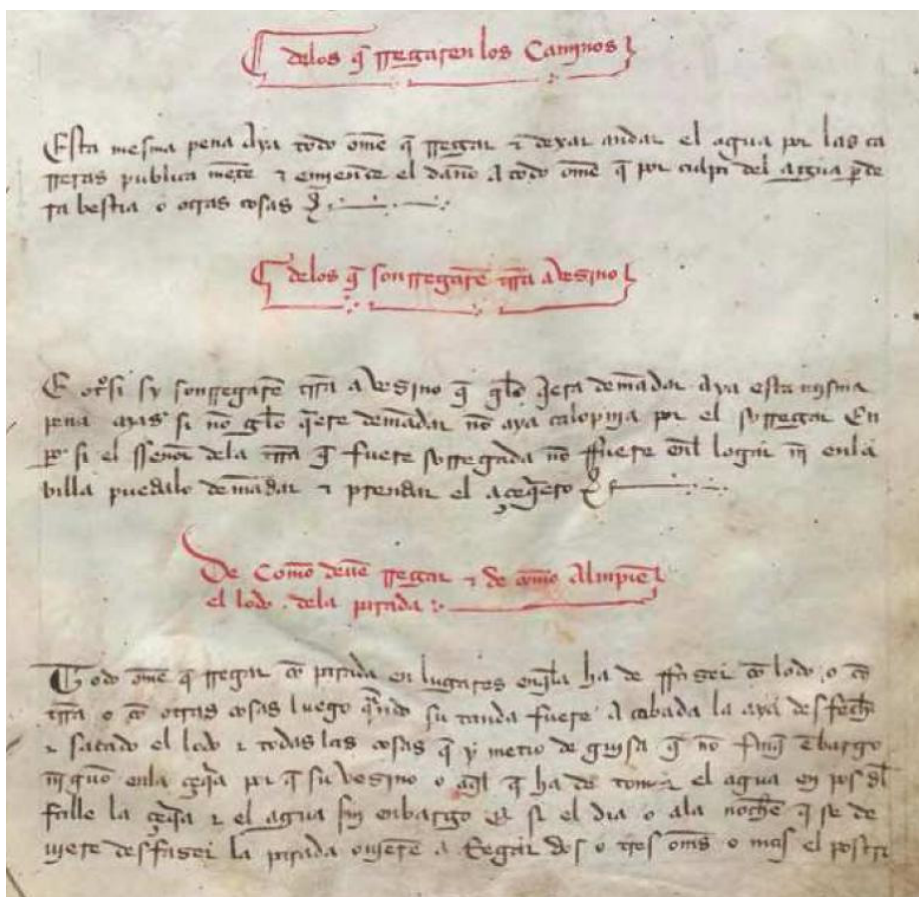 delos q̃ rregaren los Caminos
Esta mesma pena aya todo ome q̃ rregar ⁊ dexar andar el agua por las ca
rreras publica mẽte ⁊ emiende el daño a todo ome q̃ por culpa del agua pde
ra bestia o otras cosas
delos q̃ sonrregarẽ trra a vesino
E otrosi sy sonrregarẽ trra a vesino q̃ gelo q̃era demãdar aya esta mysma
pena mas si nõ gelo q̃ere demãdar nõ aya calopnja por el sorregar En
po si el sseñor dela trra q̃ fuere sorregada nõ ffuere enl logar nj̃ enla
villa puedalo demãdar ⁊ prendar el açeq̃ero
De Commo deuẽ rregar ⁊ de commo alinpiẽ
el lodo dela pirada
Todo ome q̃ rregar cõ pirada en lugares engl̃a ha de ffaser cõ lodo o cõ
trra o cõ otras cosas luego q̃ndo su tanda fuere acabada la aya desfecha
⁊ sacado el lodo ⁊ todas las cosas q̃ y metio de guysa q̃ nõ finq̃ ẽbargo
nj̃ enla çeq̃a por q̃ su vesino o aq̃l q̃ ha de tomar el agua en pos dl
falle la çeq̃a ⁊ el agua syn enbargo Et si el dia o ala noche q̃ se de
uiere desfaser la pirada ouierẽ a Regar dos o tres oms o mas el postri